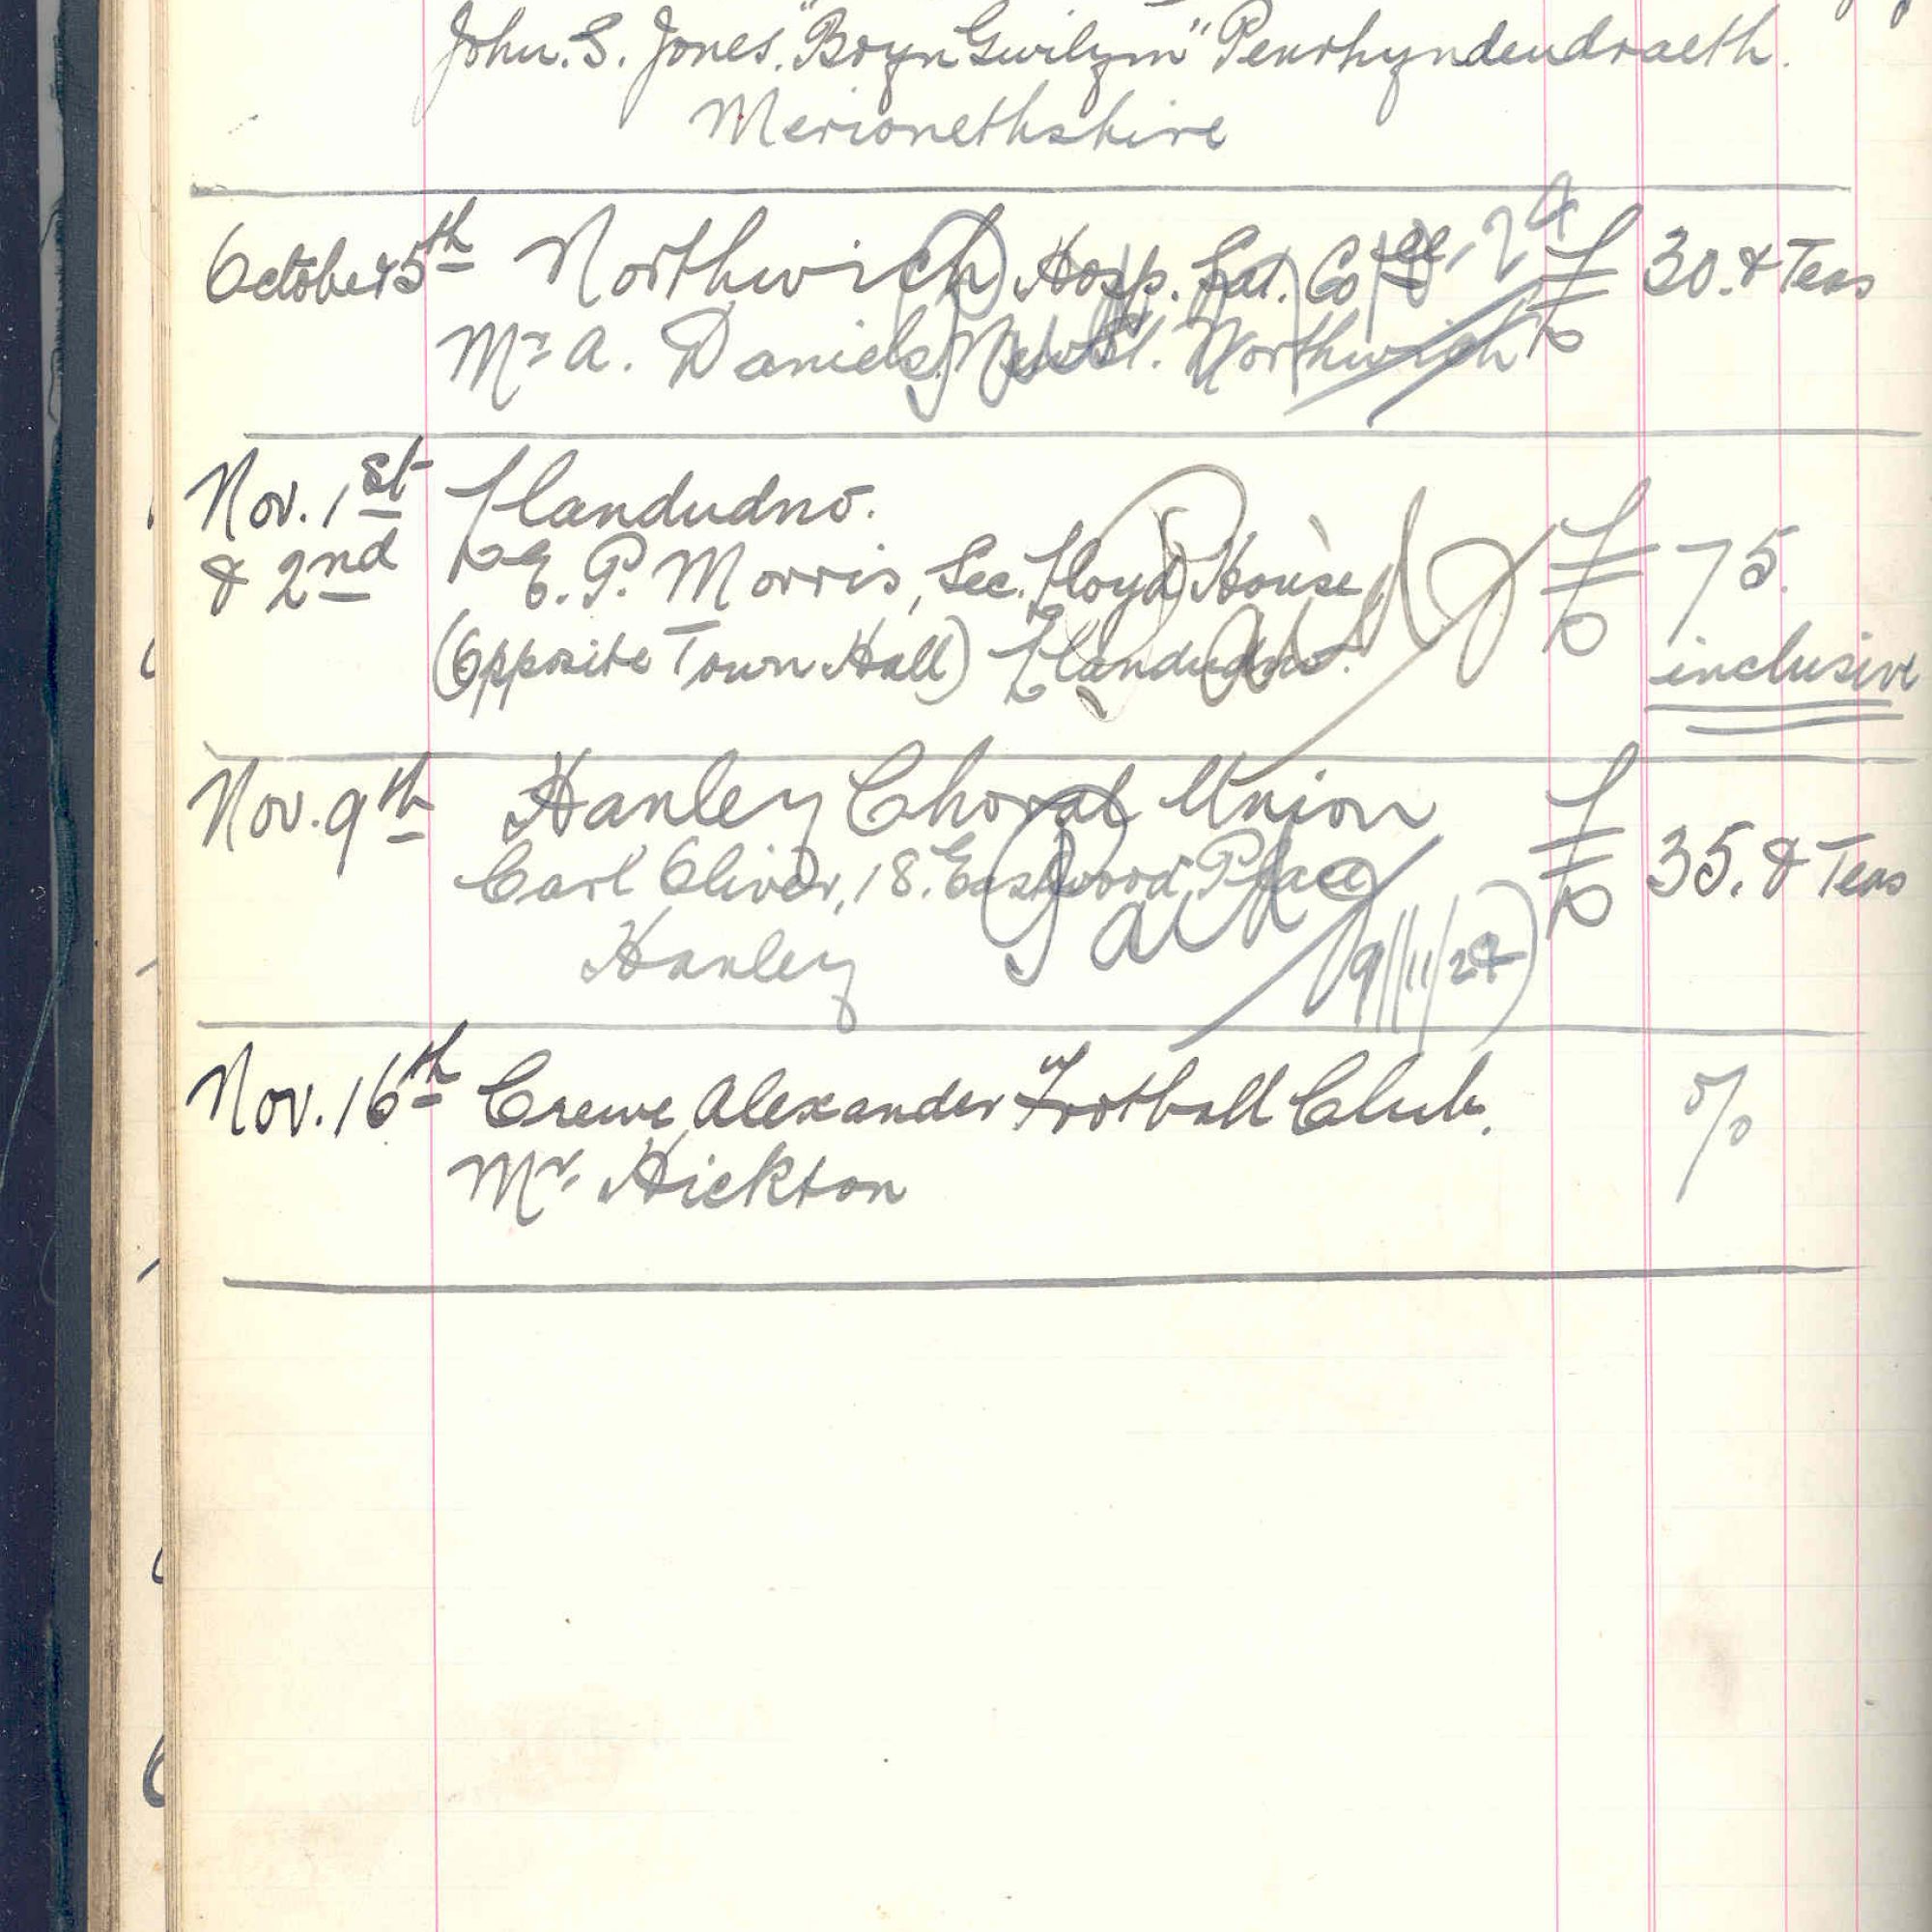 John. S. Jones. "Bryn Gwilym" Penrhyndendraeth.
Merionethshire
October 5th Northwich Hosp. Sat. Co £ 30. & Teas
Mr A. Daniels, New St. Northwich
Nov. 1st Llandudno.
& 2nd E. P. Morris, Sec. Lloyd House £ 75.
(Opposite Town Hall) Llandudno. inclusive
Paid
Nov. 9th Hanley Choral Union
Carl Oliver, 18. Eastwood Place £ 35. & Teas
Hanley
Paid
9/11/24
Nov. 16th Crewe Alexander Football Club.
Mr. Hickton